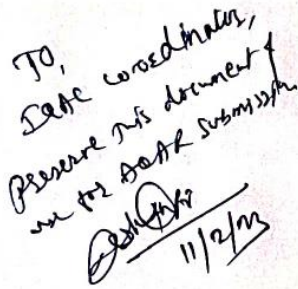 To,
IQAC coordinator,
Preserve this document &
use for AQAR submission
11/2/23